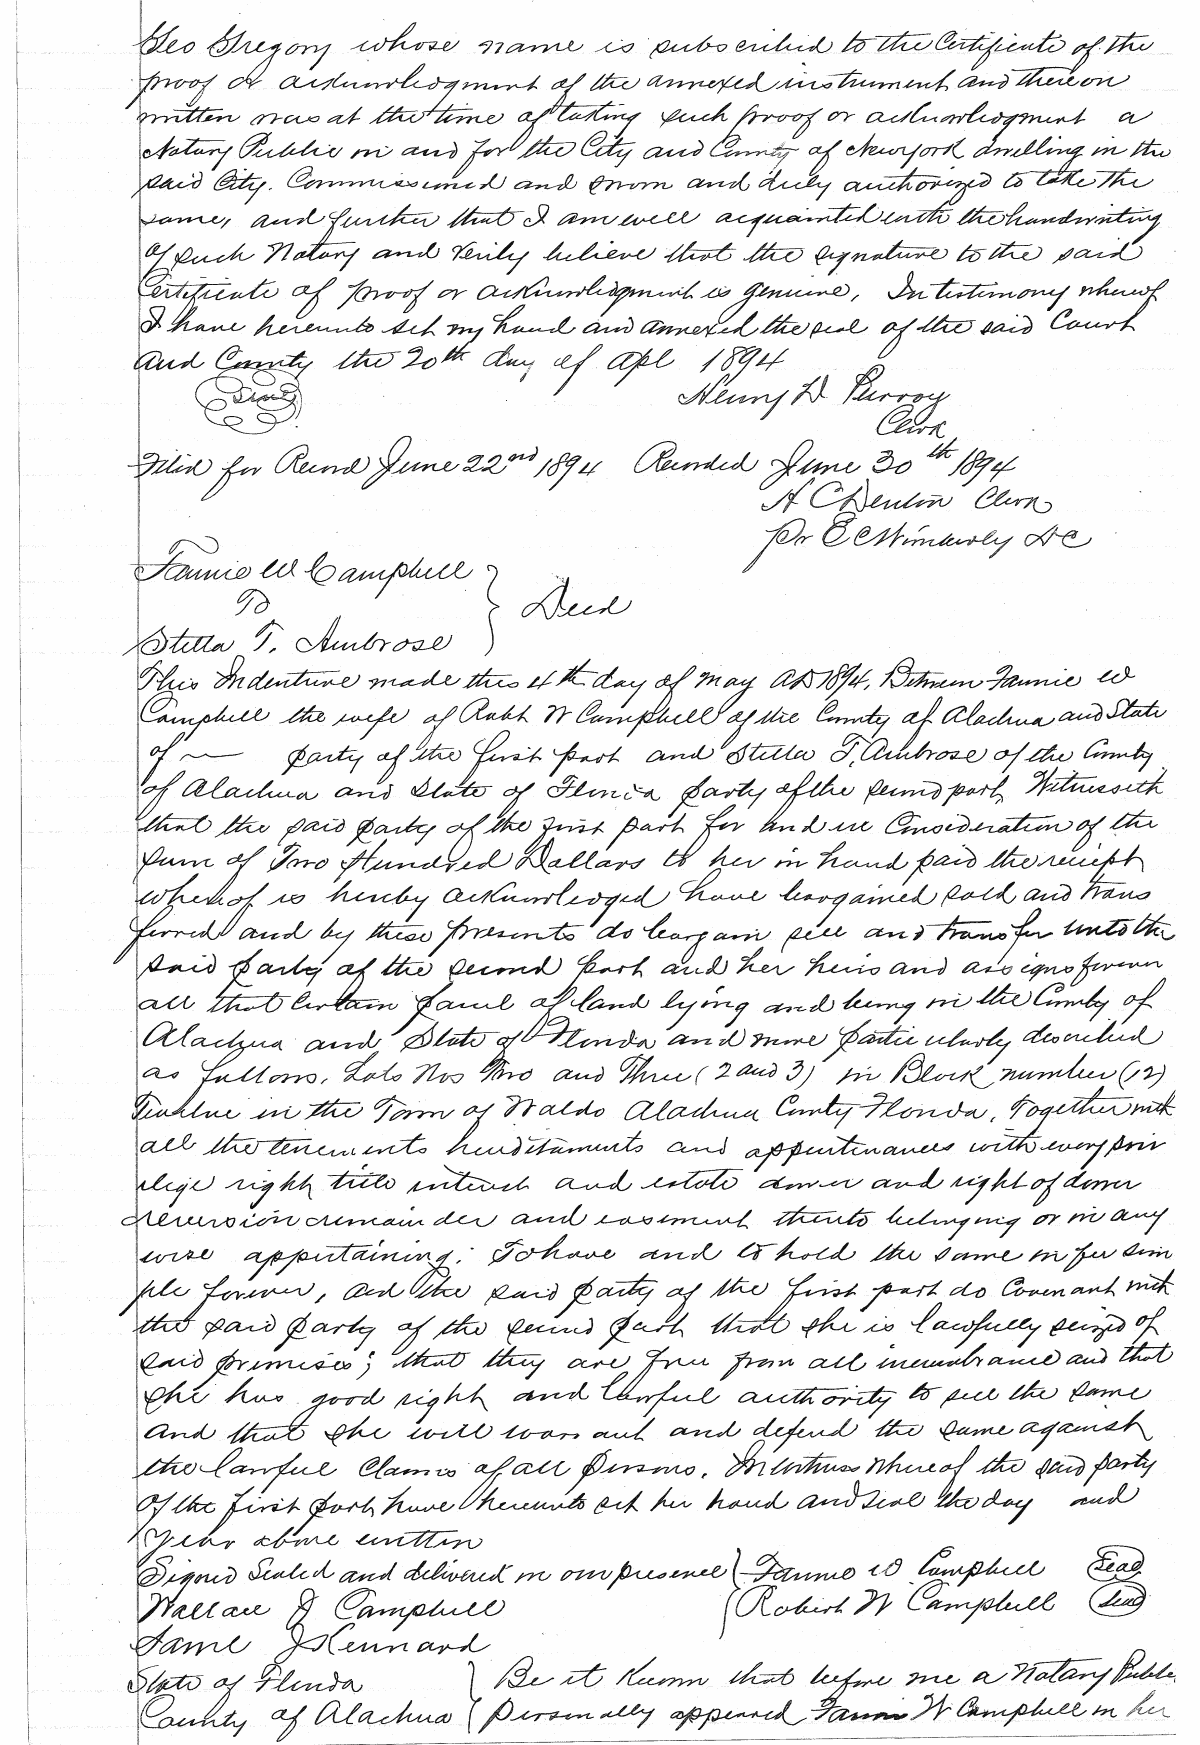 Geo Gregory whose name is subscribed to the Certificate of the
proof or acknowledgment of the annexed instrument and thereon
written was at the time of taking such proof or acknowledgment a
Notary Public in and for the City and County of New york dwelling in the
said City. Commissioned and sworn and duly authorized to take the
same, and further that I am well acquainted with the handwriting
of such Notary and verily believe that the signature to the said
Certificate of proof or acknowledgment is genuine, In testimony whereof
I have hereunto set my hand and annexed the seal of the said Court
and County the 20th day of Apl 1894
Seal
Henry D Purroy
Clerk
Filed for Record June 22nd 1894 Recorded June 30th 1894
H C Denton Clerk
Pr E C Wimberly DC
Fannie W Campbell
To
Deed
Stella T. Ambrose
This Indenture made this 4th day of May AD 1894, Between Fannie W
Campbell the wife of Robt W Campbell of the County of Alachua and State
of — party of the first part and Stella T. Ambrose of the County
of Alachua and State of Florida party of the second part, Witnesseth
that the said party of the first part for and in Consideration of the
sum of Two Hundred Dollars to her in hand paid the reciept
whereof is hereby acknowledged have bargained sold and trans
ferred and by these presents do bargain sell and transfer unto the
said party of the second part and her heirs and assigns forever
all that Certain parcel of land lying and being in the County of
Alachua and State of Florida and more particularly described
as follows, Lots Nos Two and Three (2 and 3) in Block number (12)
Twelve in the Town of Waldo Alachua County Florida, Together with
all the tenements hereditaments and appurtenances with every priv
elege right title interest and estate dower and right of dower
reversion remainder and easement thereto belonging or in any
wise appertaining: To have and to hold the same in fee sim
ple forever, and the said party of the first part do Covenant with
the said party of the second part that she is lawfully seized of
said premises; that they are free from all incumbrance and that
she has good right and lawful authority to sell the same
and that she will warrant and defend the same against
the lawful Claims of all persons. In witness whereof the said party
of the first part have hereunto set her hand and seal the day and
Year above written
Signed Sealed and delivered in our presence Fannie W Campbell Seal
Wallace J Campbell Robert W Campbell Seal
J Kennard
State of Florida Be it Known that before me a Notary Public
County of Alachua personally appeared Fannie W Campbell in her